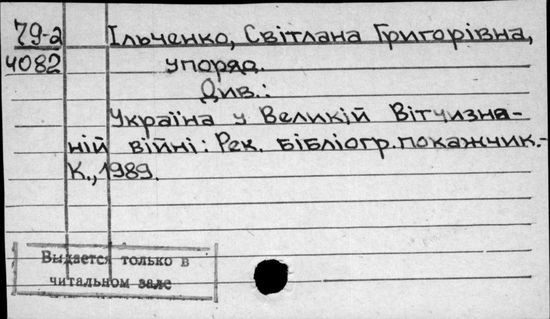 79-а Ільченко, Світлана Григорівна,
4082 упоряд.
Див.:
Україна у Великій Вітчизня-
ній війні: Рек. бібліогр. покажчик.-
К., 1989.
Выдается только в
читальном зале